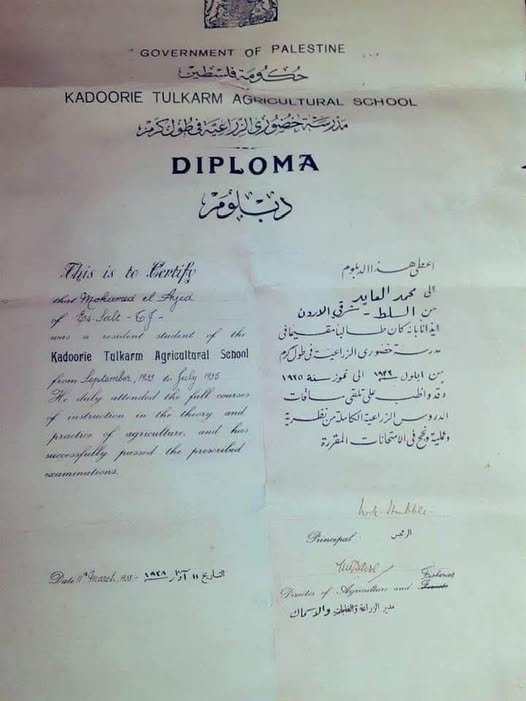 GOVERNMENT OF PALESTINE
حكومة فلسطين
KADOORIE TULKARM AGRICULTURAL SCHOOL
مدرسة خضوري الزراعية في طول كرم
DIPLOMA
دبلوم
This is to Certify
that Mohamed el Ayed
of Es-Salt - TJ-
was a resident student of the
Kadoorie Tulkarm Agricultural School
from September, 1933 to July 1935
He duly attended the full courses
of instruction in the theory and
practice of agriculture, and has
successfully passed the prescribed
examinations.
اعطي هذا الدبلوم
الى محمد العايد
من السلط - شرقي الاردن
ايذانا بانه كان طالبا مقيما في
مدرسة خضوري الزراعية في طول كرم
من ايلول الى تموز سنة ١٩٣٥
وقد واظب على تلقي ساقات
الدروس الزراعية الكاملة من نظرية
وعملية ونجح في الامتحانات المقررة
Principal الرئيس
Date 11th March, 1938 - التاريخ ١١ آذار ١٩٣٨
Director of Agriculture and Fisheries
مدير الزراعة والاسماك